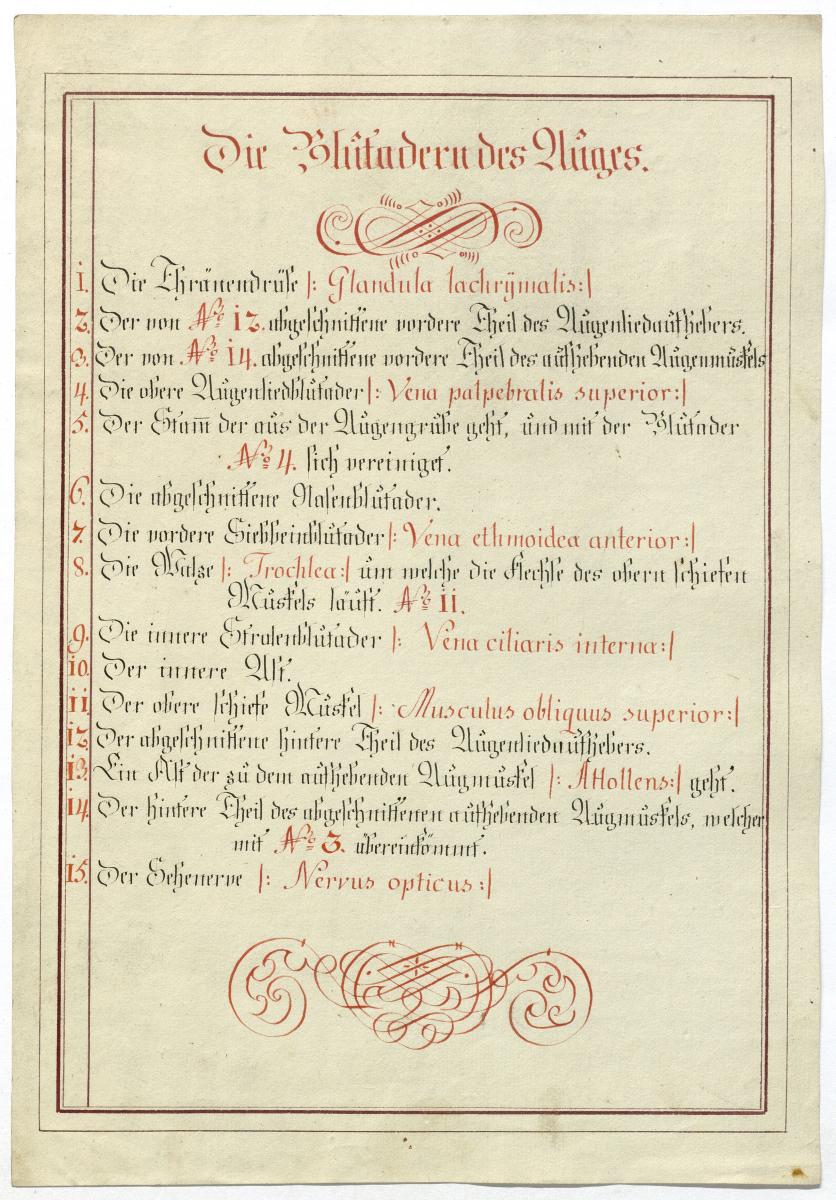 Die Blutadern des Auges.
1. Die Thränendrüse |: Glandula lachrÿmalis:|
2. Der von No 12. abgeschnittene vordere Theil des Augenliedaufhebers.
3. Der von No 14. abgeschnittene vordere Theil des aufhebenden Augenmuskels
4. Die obere Augenliedblutader |: Vena palpebralis superior:|
5. Der Stam̅ der aus der Augengrube geht, und mit der Blutader
No 4. sich vereiniget.
6. Die abgeschnittene Nasenblutader.
7. Die vordere Siebbeinblutader |: Vena ethmoidea anterior:|
8. Die Walze |: Trochlea:| um welche die Flechse des obern schiefen
Muskels läuft. No 11.
9. Die innere Stralenblutader |: Vena ciliaris interna:|
10. Der innere Ast.
11. Der obere schiefe Muskel |: Musculus obliquus superior:|
12. Der abgeschnittene hintere Theil des Augenliedaufhebers.
13. Ein Ast der zu dem aufhebenden Augmuskel |: Attollens:| geht.
14. Der hintere Theil des abgeschnittenen aufhebenden Augmuskels, welcher
mit No 3. übereinkömmt.
15. Der Sehenerve |: Nervus opticus:|